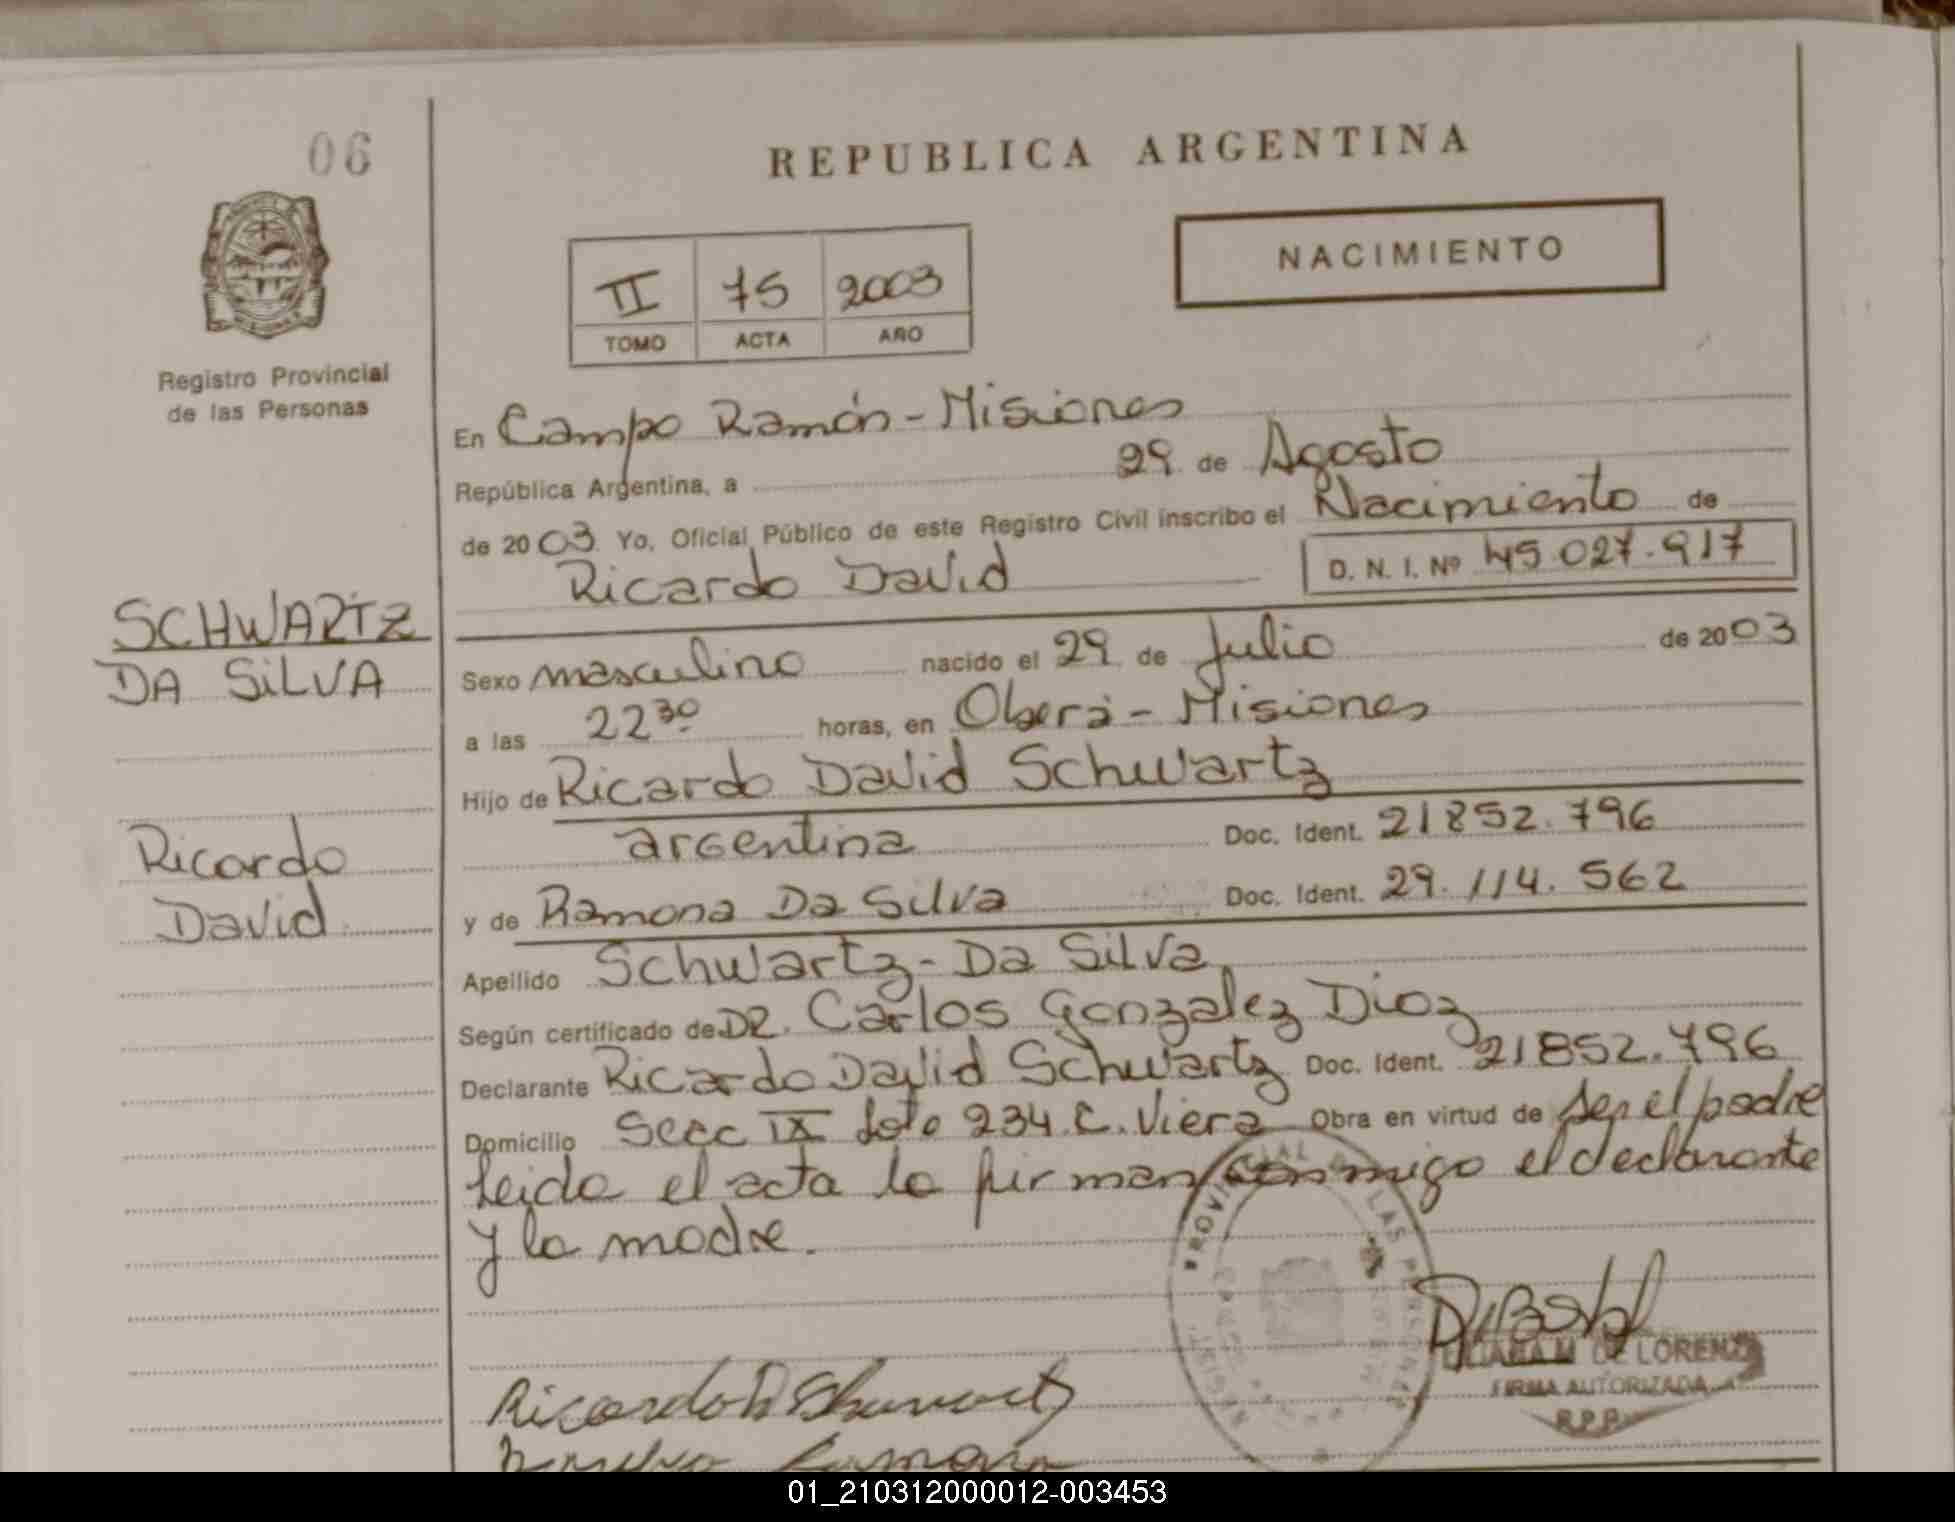 06
REPUBLICA ARGENTINA
NACIMIENTO
II 75 2003
TOMO ACTA AÑO
Registro Provincial
de las Personas
En Campo Ramón - Misiones
República Argentina, a 29 de Agosto
de 2003 Yo, Oficial Público de este Registro Civil inscribo el Nacimiento de
Ricardo David D. N. I. Nº 45.027.917
SCHWARTZ
DA SiLVA
Sexo masculino nacido el 29 de Julio de 2003
a las 22 30 horas, en Oberá - Misiones
Hijo de Ricardo David Schwartz
argentina Doc. Ident. 21852.796
Ricardo
David
y de Ramona Da Silva Doc. Ident. 29.114.562
Apellido Schwartz - Da Silva
Según certificado de DR. Carlos Gonzalez Dioz
Declarante Ricardo David Schwartz Doc. Ident. 21852.796
Domicilio Secc IX Lote 234.C. Viera Obra en virtud de ser el padre
Leida el acta la firman conmigo el declarante
y la madre.
PROVINCIAL DE LAS PERSONAS
LILIANA M DE LORENZO
FIRMA AUTORIZADA
R.P.P.
Ricardo D Schwartz
Ramona
01_210312000012-003453